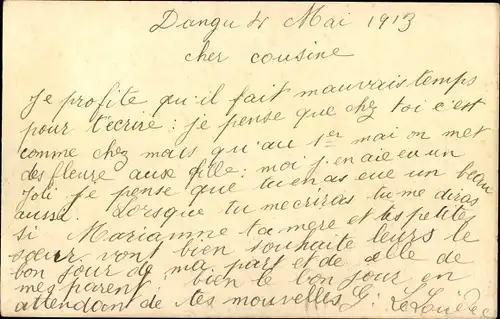 Dangu 4 Mai 1913
cher cousine
Je profite qu'il fait mauvais temps
pour t'ecrire : je pense que chez toi c'est
comme chez mais qu'au 1er mai on met
des fleure aux fille : moi j'en aie eu un
Joli je pense que tu en as eue un beau
aussi. Lorsque tu mecriras tu me diras
si Marianne ta mere et tes petite
sœur vont bien souhaite leurs le
bon jour de ma part et de elle de
mes parent. bien le bon jour en
attendant de tes nouvelles G.